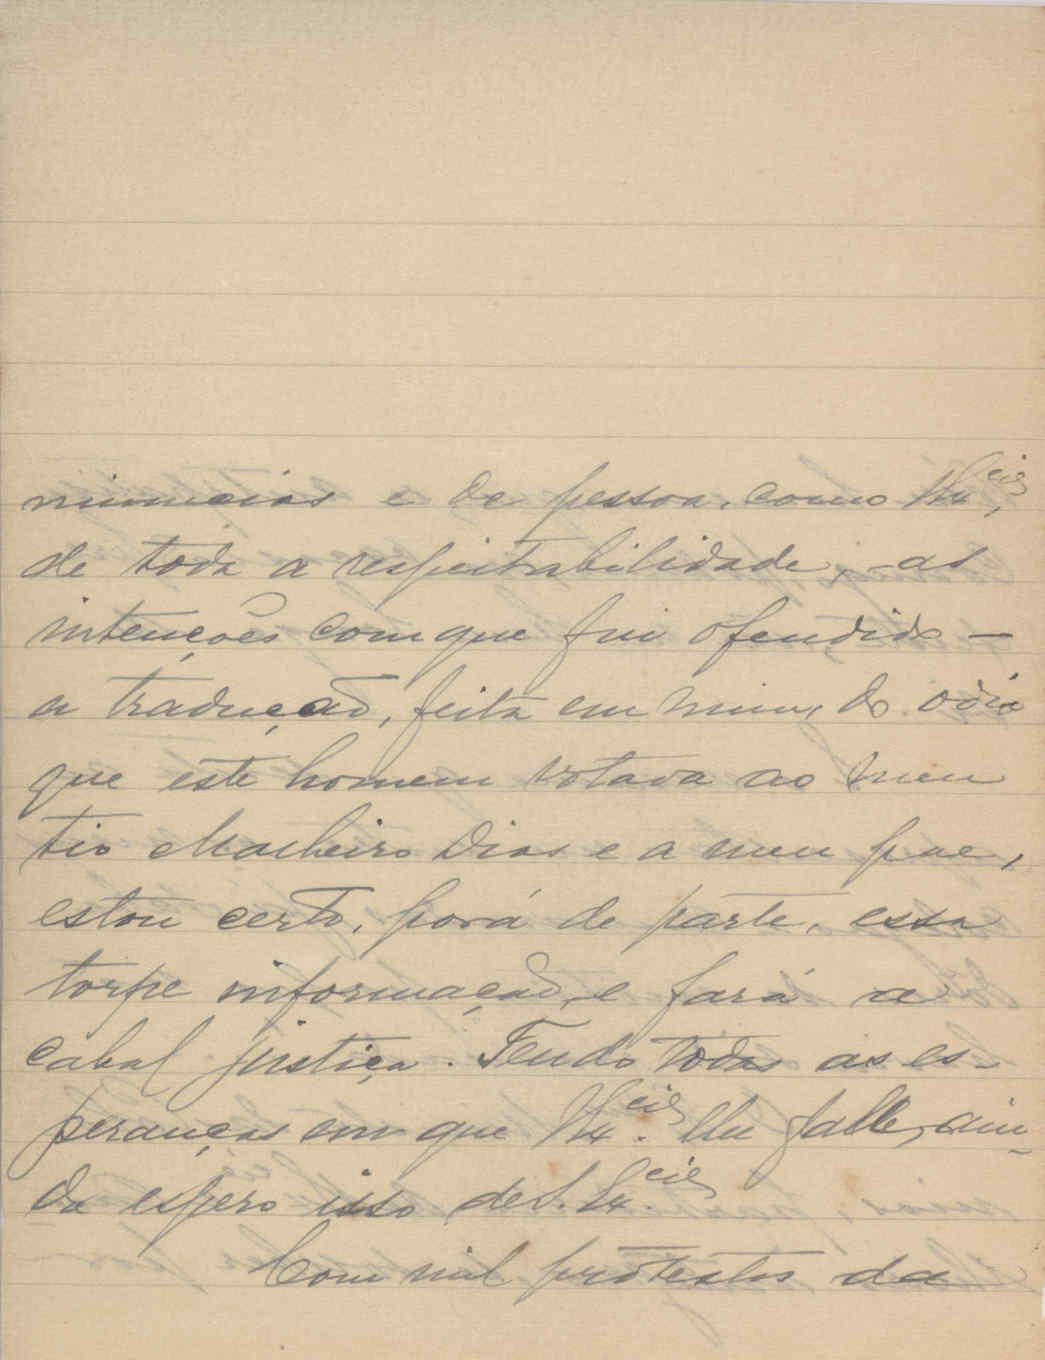 minucias e de pessoa, como V. Ex.cia,
de toda a respeitabilidade, - as
intenções com que fui ofendido -
a traducção, feita em mim, do odio
que este homem votava ao meu
tio Malheiro Dias e a meu pae,
estou certo, porá de parte, essa
torpe informação, e fará a
cabal justiça. Tendo todas as es-
peranças em que V. Ex.cia lhe falle, ain-
da espero isso de S. Ex.cia
Com mil protestos da